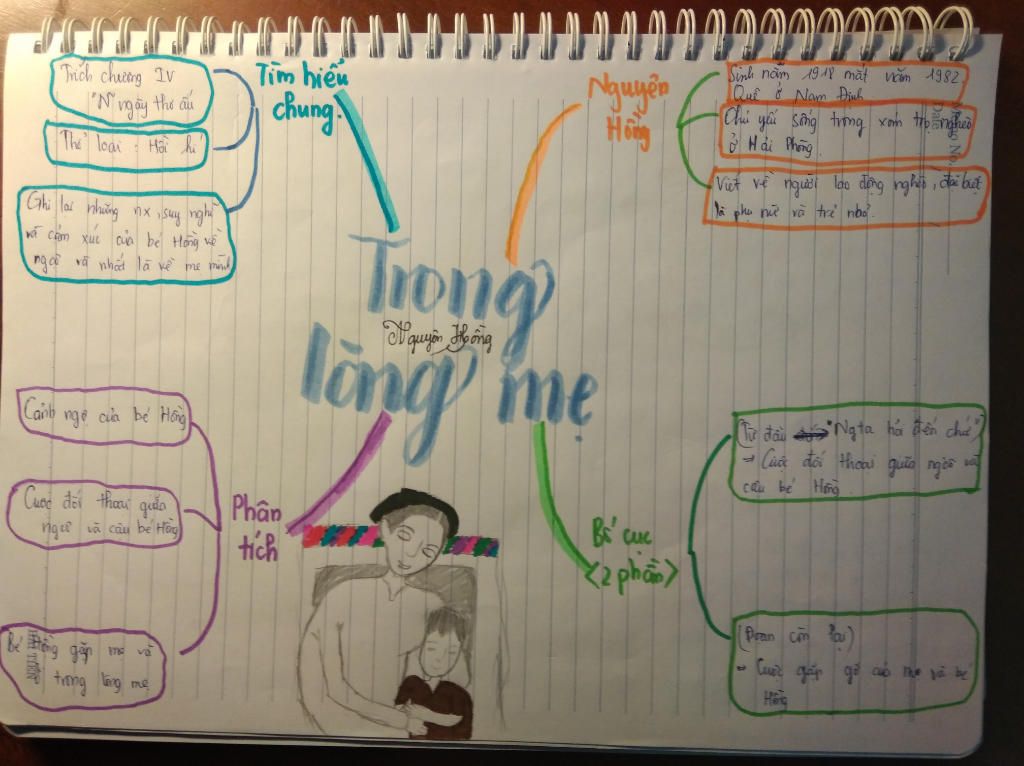 Tìm hiểu
chung.
Trích chương IV
"N" ngày thơ ấu
Thể loại : Hồi kí
Ghi lại những nx, suy nghĩ
và cảm xúc của bé Hồng về
ngcô và nhất là về mẹ mình
Nguyên
Hồng
Sinh năm 1918 mất năm 1982
Quê ở Nam Định
Chủ yếu sống trong xóm trọ nghèo
ở Hải Phòng.
Viết về người lao động nghèo, đặc biệt
là phụ nữ và trẻ nhỏ.
Memo No.
Date
Trong
Nguyên Hồng
lòng mẹ
Phân
tích
Cảnh ngộ của bé Hồng
Cuộc đối thoại giữa
ngcô và cậu bé Hồng
Bé Hồng gặp mẹ và
trong lòng mẹ
Bố cục
<2 phần>
(Từ đầu "Ngta hỏi đến chứ")
→ Cuộc đối thoại giữa ngcô và
cậu bé Hồng.
(Đoạn còn lại)
→ Cuộc gặp gỡ của mẹ và bé
Hồng